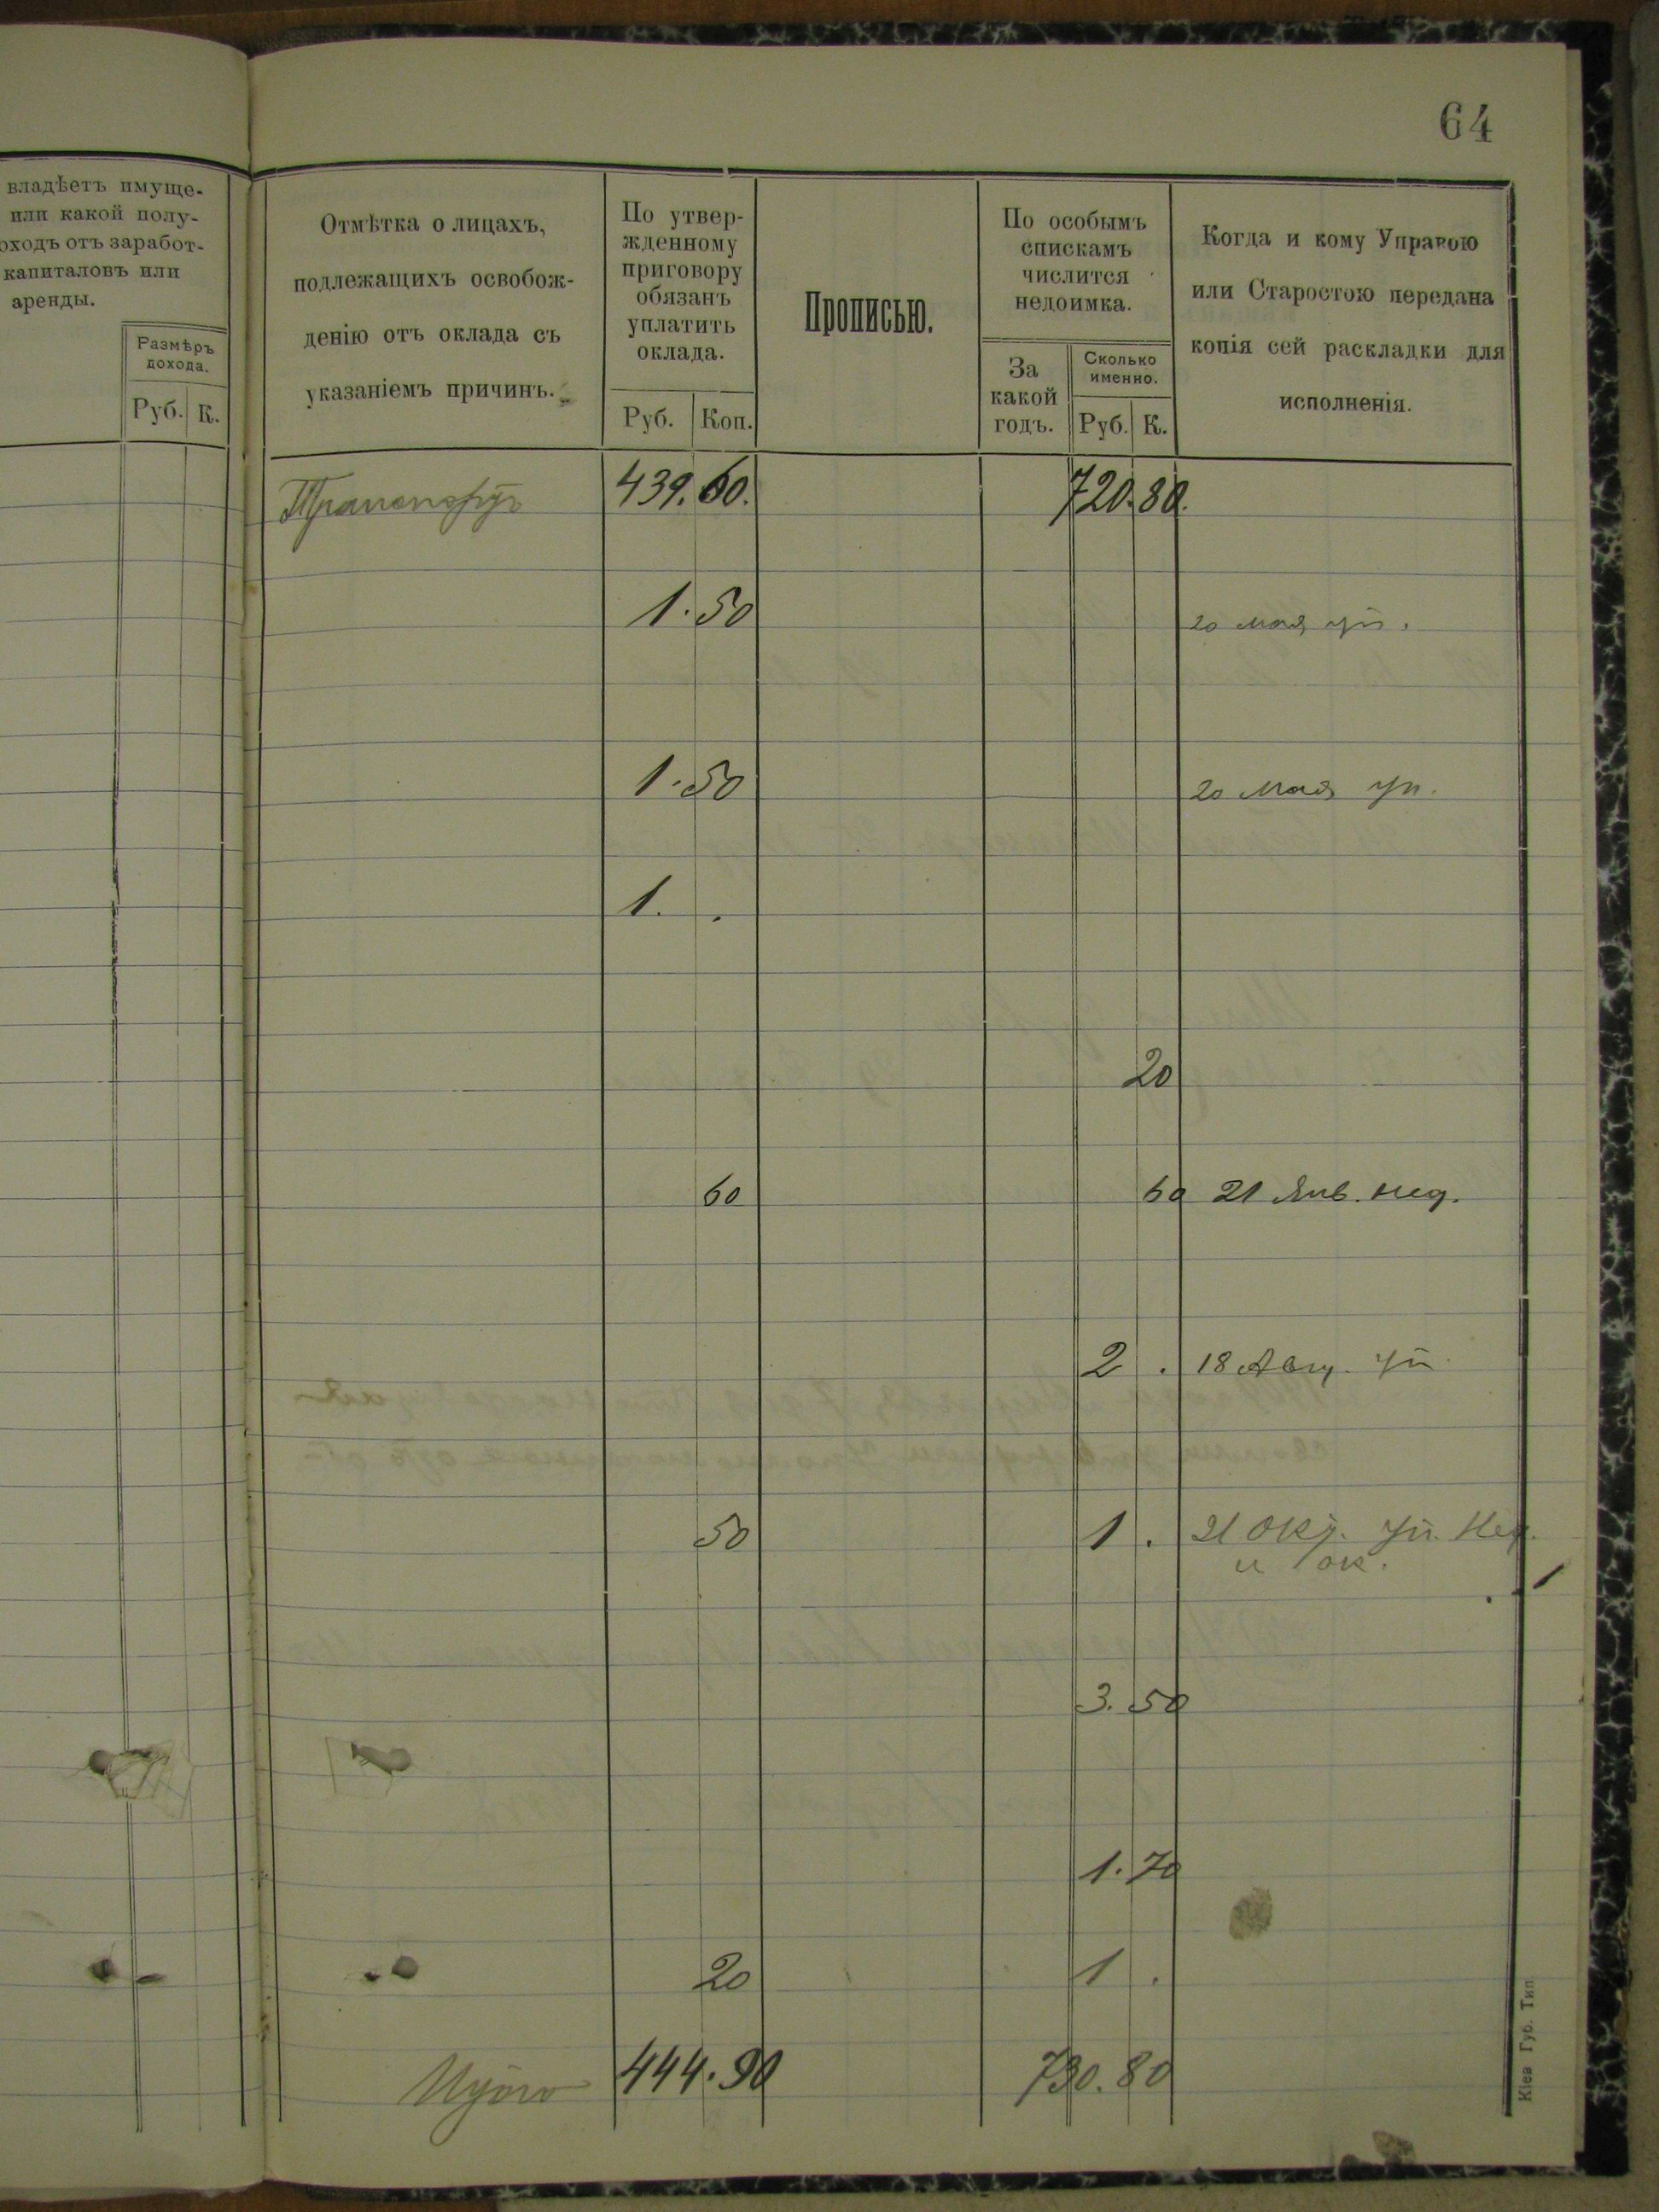 64
владѣетъ имуще-
или какой полу-
оходъ отъ заработ-
капиталовъ или
аренды.
Размѣръ
дохода.
Руб. К.
Отмѣтка о лицахъ,
подлежащихъ освобож-
денію отъ оклада съ
указаніемъ причинъ.
По утвер-
жденному
приговору
обязанъ
уплатить
оклада.
Руб. Коп.
Прописью.
По особымъ
спискамъ
числится
недоимка.
За
какой
годъ.
Сколько
именно.
Руб. К.
Когда и кому Управою
или Старостою передана
копія сей раскладки для
исполненія.
Транспортъ 439. 60. 720. 80.
1. 50 20 мая уп.
1. 50 20 мая уп.
1. .
20
60 60 21 Янв. нед.
2 . 18 Авгу. уп.
50 1 . 21 Окт. уп. Нед.
и ок.
3. 50
1. 70
20 1 .
Итого 444. 90 730. 80
Кіев Губ. Тип.